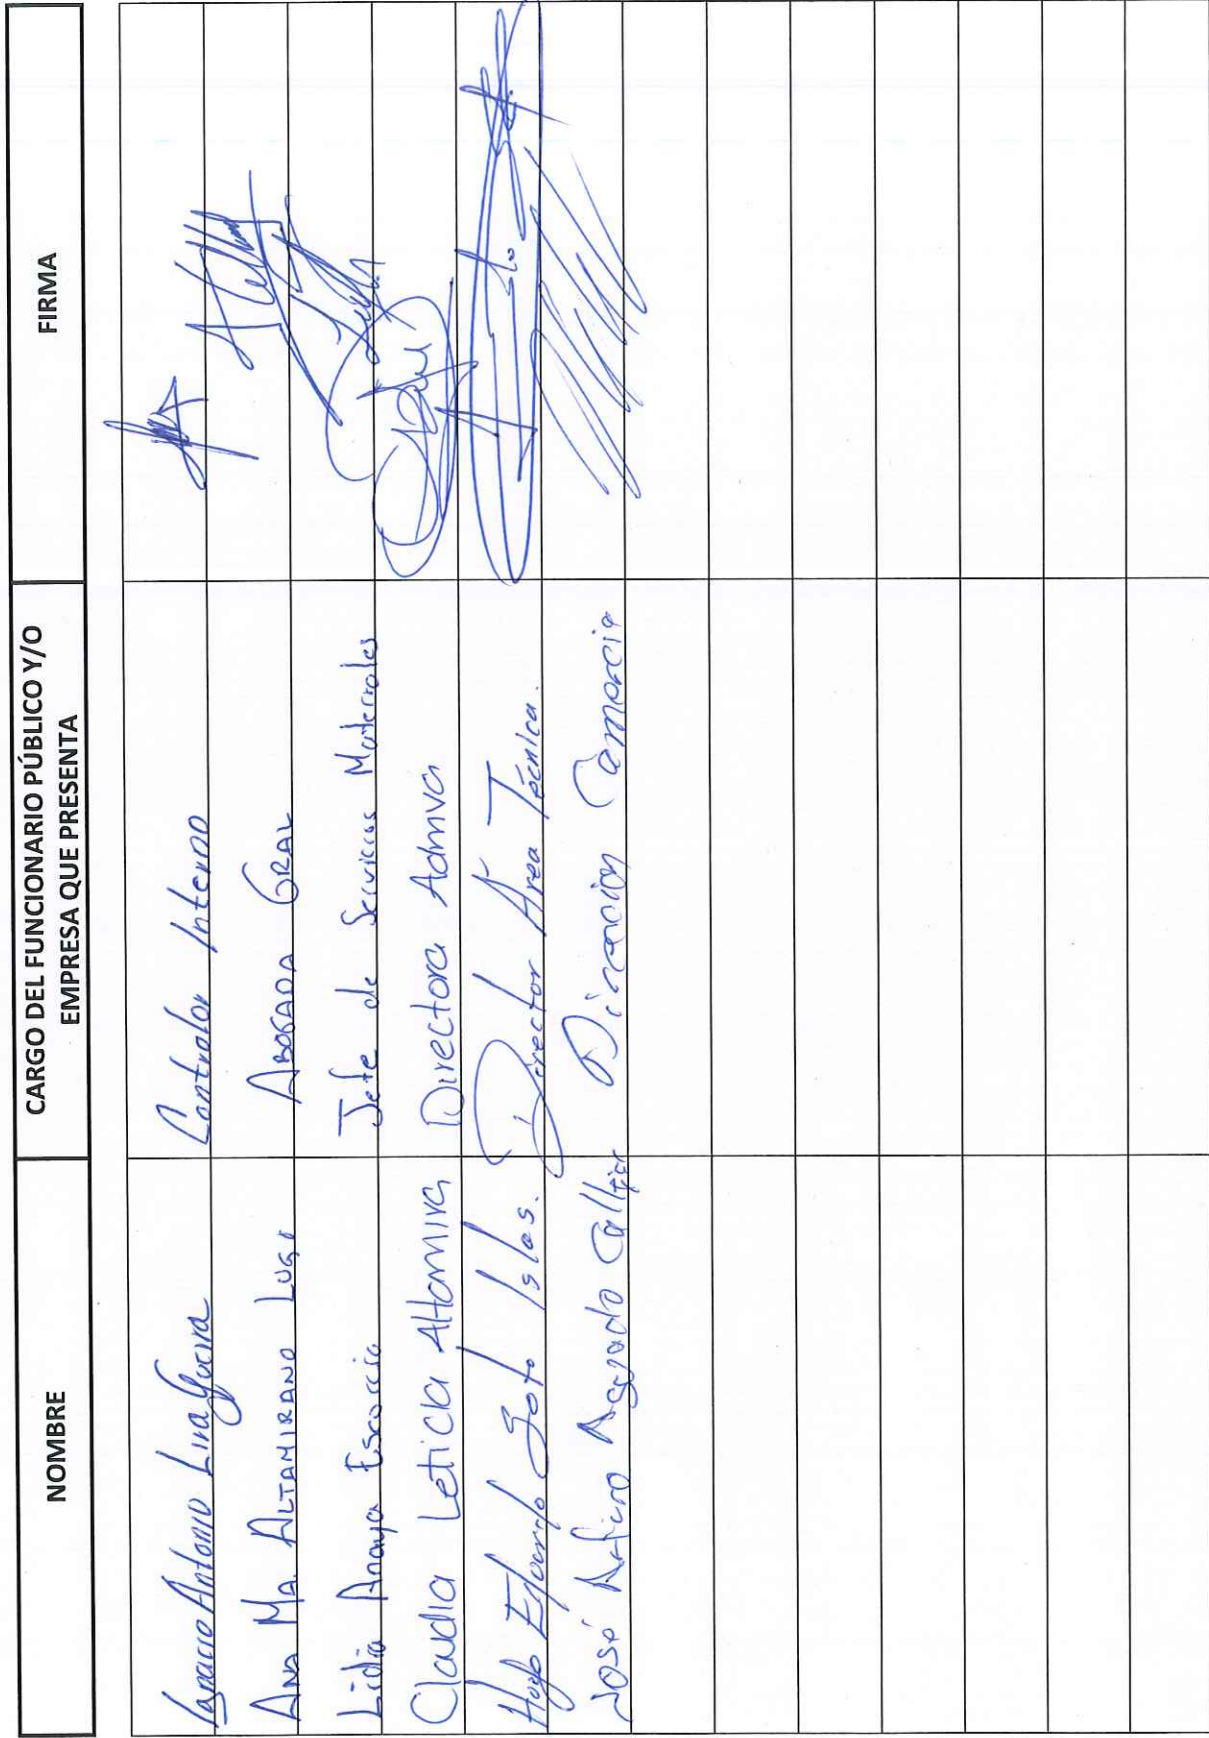 NOMBRE
CARGO DEL FUNCIONARIO PÚBLICO Y/O
EMPRESA QUE PRESENTA
FIRMA
Ignacio Antonio Lira Guerra Contralor Interno
ANA MA. ALTAMIRANO LUGO ABOGADA GRAL
Lidia Anaya Escorcia Jefe de Servicios Materiales
Claudia Leticia Altamira Directora Admva
Hugo Eduardo Soto Islas. Director Area Técnica.
José Arturo Aguado Dirección